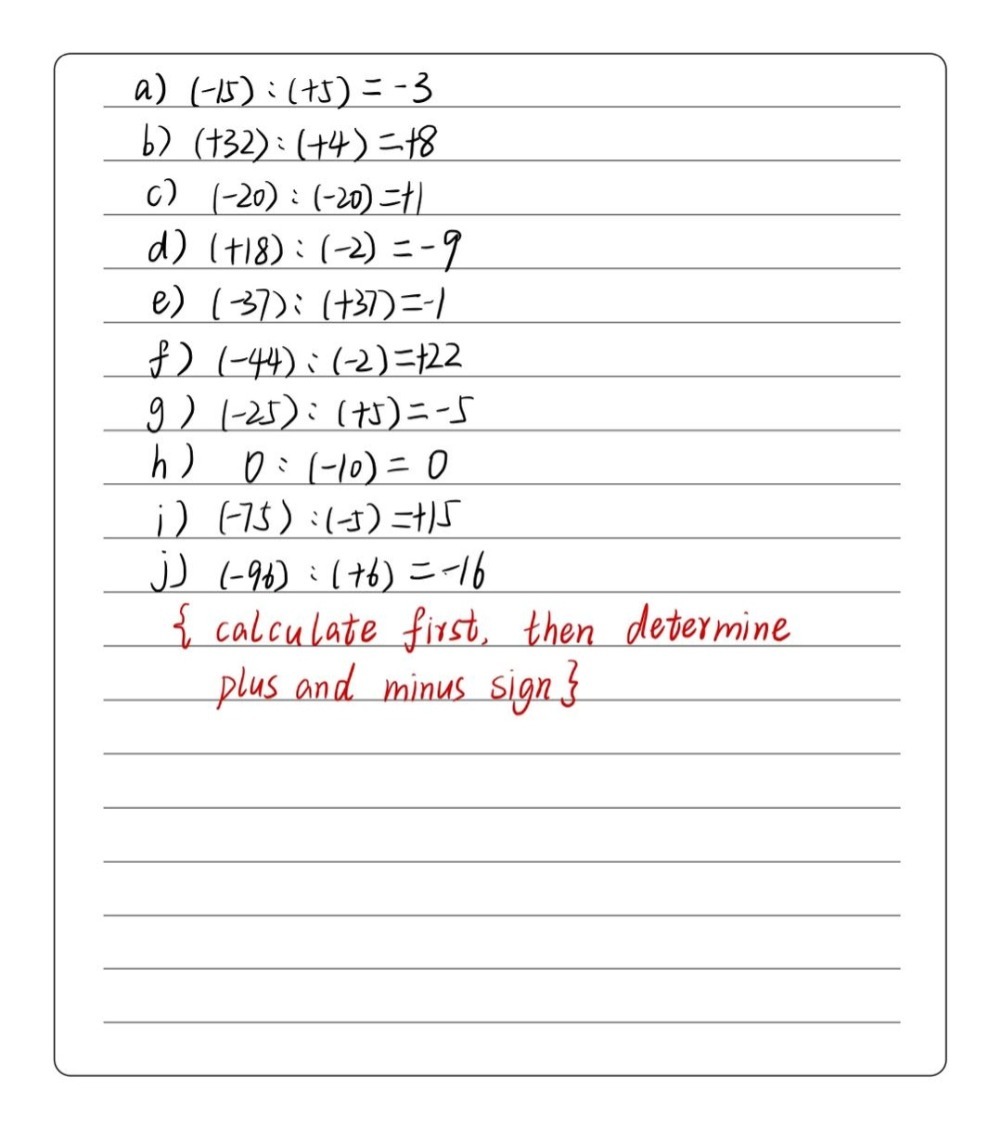 a) (-15) : (+5) = -3
b) (+32) : (+4) = +8
c) (-20) : (-20) = +1
d) (+18) : (-2) = -9
e) (-37) : (+37) = -1
f) (-44) : (-2) = +22
g) (-25) : (+5) = -5
h) 0 : (-10) = 0
i) (-75) : (-5) = +15
j) (-96) : (+6) = -16
{ calculate first, then determine
plus and minus sign }